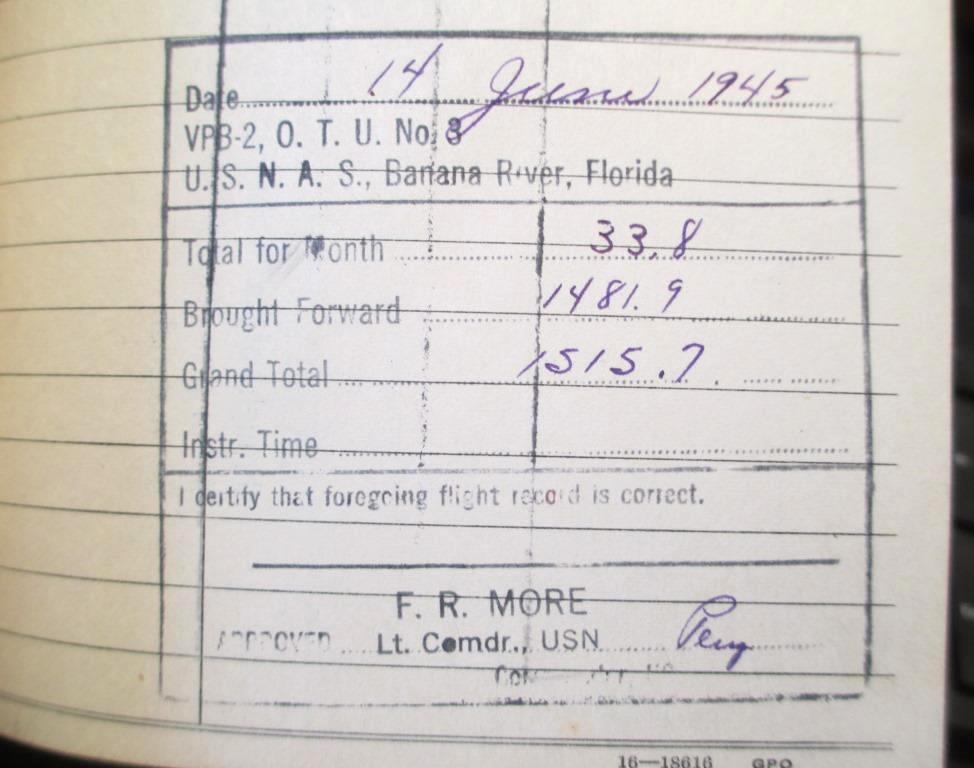 Date 14 June 1945
VPB-2, O. T. U. No. 8
U. S. N. A. S., Banana River, Florida
Total for Month 33.8
Brought Forward 1481.9
Grand Total 1515.7
Instr. Time
I certify that foregoing flight record is correct.
F. R. MORE
APPROVED Lt. Comdr., USN
16—18616 GPO